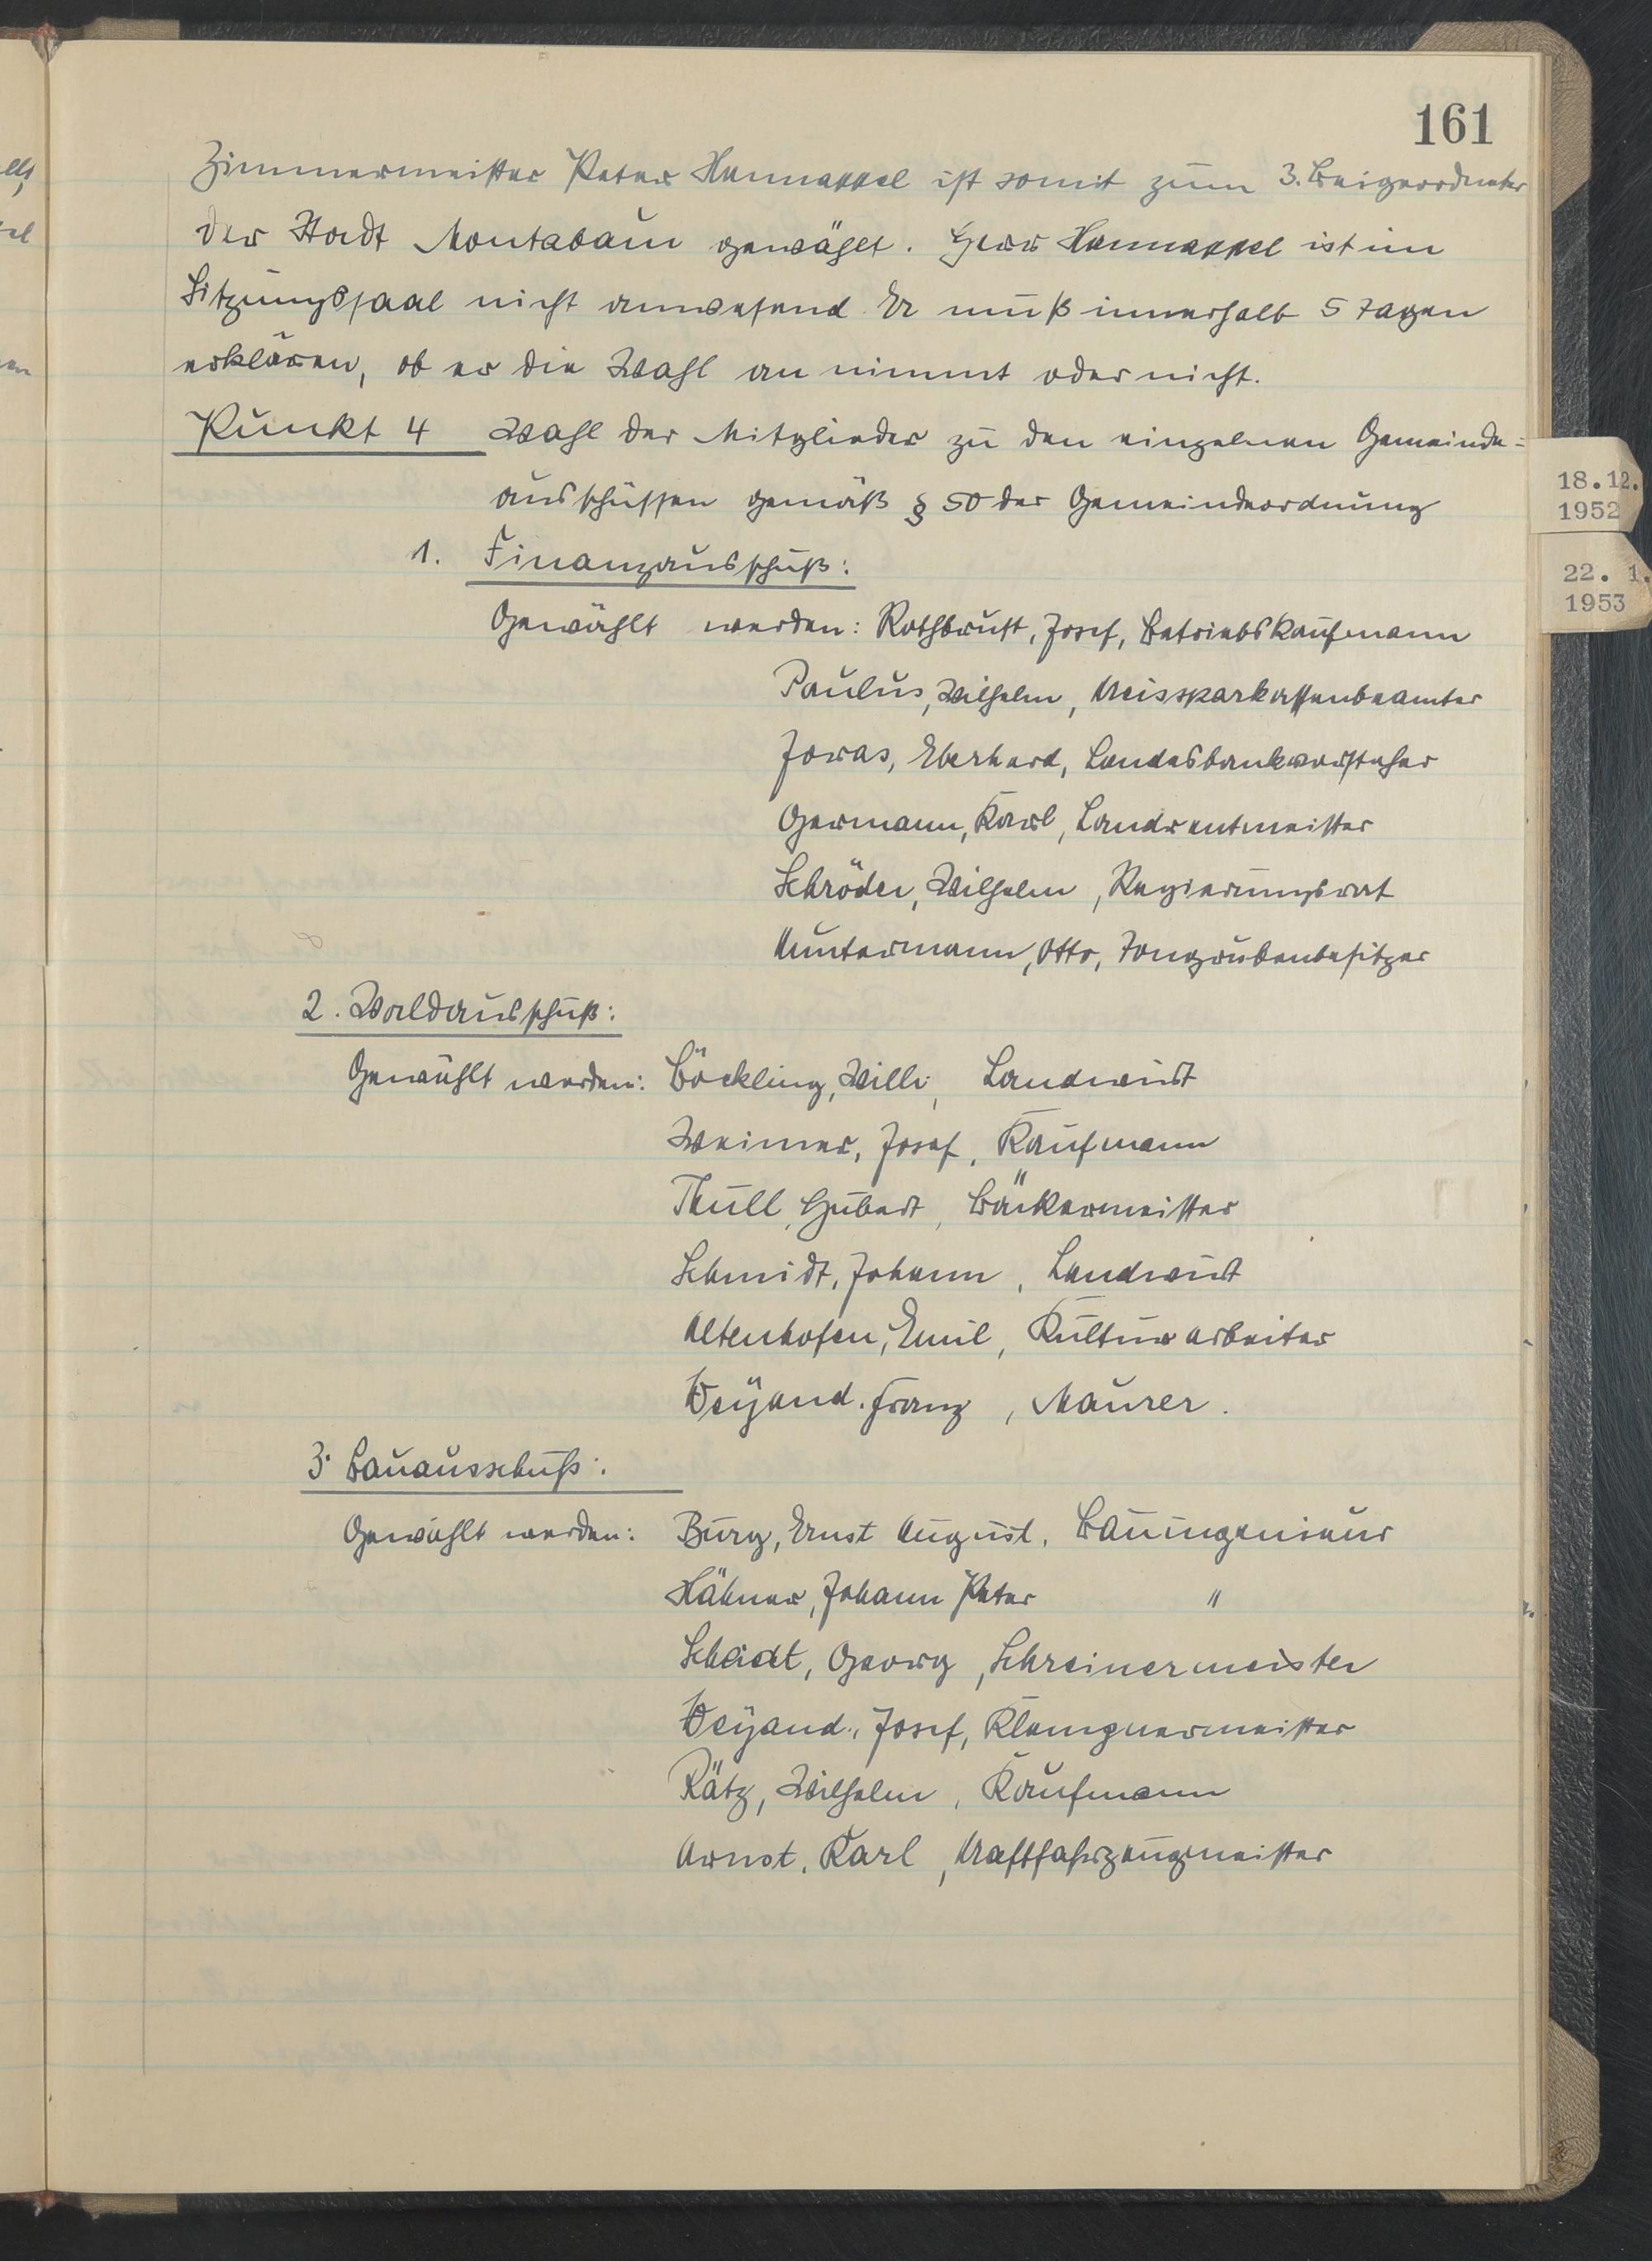 161
Zimmermeister Peter Hannappel ist somit zum 3. Beigeordneter
der Stadt Montabaur gewählt. Herr Hannappel ist im
Sitzungssaal nicht anwesend. Er muß innerhalb 5 Tagen
erklären, ob er die Wahl an nimmt oder nicht.
Punkt 4 Wahl der Mitglieder zu den einzelnen Gemeinde=
ausschüssen gemäß § 50 der Gemeindeordnung
18.12.
1952
1. Finanzausschuß:
22. 1.
1953
Gewählt werden: Rothbrust, Josef, Betriebskaufmann
Paulus, Wilhelm, Kreissparkassenbeamter
Joras, Eberhard, Landesbankvorsteher
Germann, Karl, Landrentmeister
Schröder, Wilhelm, Regierungsrat
Kuntermann, Otto, Tongrubenbesitzer
2. Waldausschuß:
Gewählt werden: Böckling, Willi, Landwirt
Weimer, Josef, Kaufmann
Thull, Hubert, Bäckermeister
Schmidt, Johann, Landwirt
Altenhofen, Emil, Kulturarbeiter
Weyand. Franz, Maurer.
3. Bauausschuß:
Gewählt werden: Burg, Ernst August, Bauingenieur
Hähner, Johann Peter "
Schaidt, Georg, Schreinermeister
Weyand, Josef, Klempnermeister
Rätz, Wilhelm, Kaufmann
Arnst, Karl, Kraftfahrzeugmeister